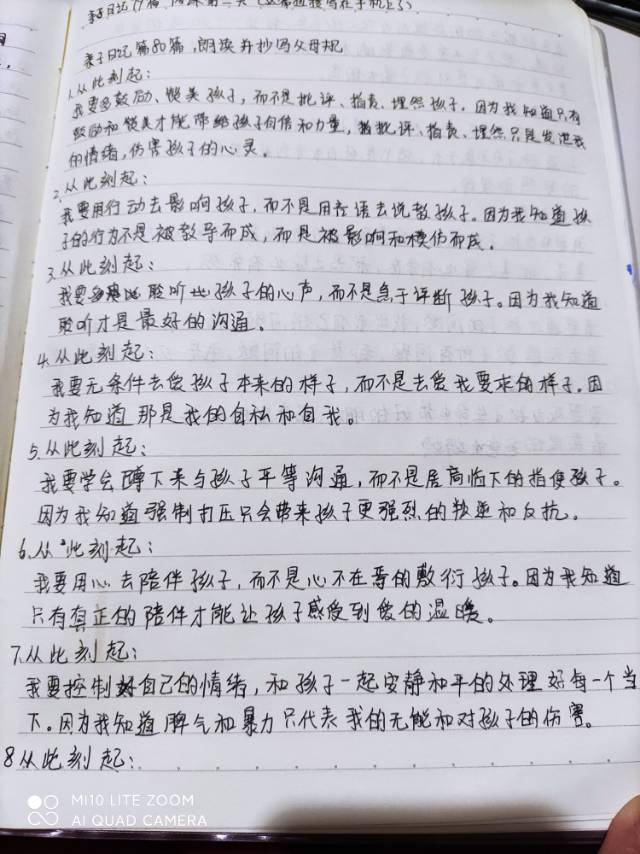 亲子日记第80篇,朗读并抄写父母规
1.从此刻起:
我要多鼓励、赞美孩子,而不是批评、指责、埋怨孩子。因为我知道只有
鼓励和赞美才能带给孩子自信和力量,批评、指责、埋怨只是发泄我
的情绪,伤害孩子的心灵。
2.从此刻起:
我要用行动去影响孩子,而不是用言语去说教孩子。因为我知道孩
子的行为不是被教导而成,而是被影响和模仿而成。
3.从此刻起:
我要聆听孩子的心声,而不是急于评断孩子。因为我知道
聆听才是最好的沟通。
4.从此刻起:
我要无条件去爱孩子本来的样子,而不是去爱我要求的样子。因
为我知道那是我的自私和自我。
5.从此刻起:
我要学会蹲下来与孩子平等沟通,而不是居高临下的指使孩子。
因为我知道强制打压只会带来孩子更强烈的叛逆和反抗。
6.从此刻起:
我要用心去陪伴孩子,而不是心不在焉的敷衍孩子。因为我知道
只有真正的陪伴才能让孩子感受到爱的温暖。
7.从此刻起:
我要控制好自己的情绪,和孩子一起安静和平的处理好每一个当
下。因为我知道脾气和暴力只代表我的无能和对孩子的伤害。
8从此刻起:
MI10 LITE ZOOM
AI QUAD CAMERA